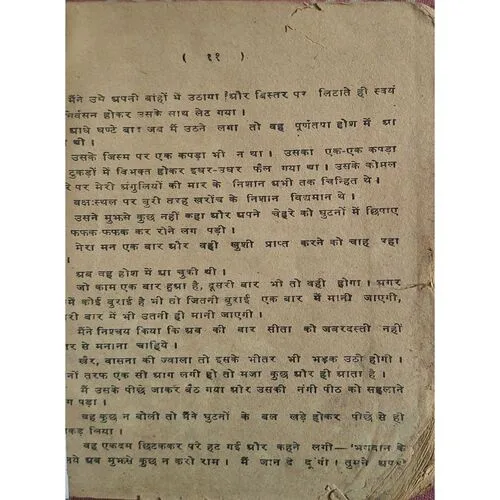 ( ११ )
मैंने उसे अपनी बांहों में उठाया और बिस्तर पर लिटाते ही स्वयं
निर्वसन होकर उसके साथ लेट गया ।
आधे घण्टे बाद जब मैं उठने लगा तो वह पूर्णतया होश में आ
थी ।
उसके जिस्म पर एक कपड़ा भी न था । उसका एक-एक कपड़ा
टुकड़ों में विभक्त होकर इधर-उधर फैल गया था । उसके कोमल
रे पर मेरी अंगुलियों की मार के निशान अभी तक चिन्हित थे ।
वक्षःस्थल पर बुरी तरह खरोंच के निशान विद्यमान थे ।
उसने मुझसे कुछ नहीं कहा और अपने चेहरे को घुटनों में छिपाए
फफक फफक कर रोने लग पड़ी ।
मेरा मन एक बार और वही खुशी प्राप्त करने को चाह रहा
।
अब वह होश में आ चुकी थी ।
जो काम एक बार हुआ है, दूसरी बार भी तो वही होगा । अगर
में कोई बुराई है भी तो जितनी बुराई एक बार में मानी जाएगी,
सरी बार में भी उतनी ही मानी जाएगी ।
मैंने निश्चय किया कि अब की बार सीता को जबरदस्ती नहीं
र से मनाना चाहिये ।
खैर, वासना की ज्वाला तो इसके भीतर भी भड़क उठी होगी ।
नों तरफ एक सी आग लगी हो तो मजा कुछ और ही आता है ।
मैं उसके पीछे जाकर बैठ गया और उसकी नंगी पीठ को सहलाने
ग पड़ा ।
वह कुछ न बोली तो मैंने घुटनों के बल खड़े होकर पीछे से ही
कड़ लिया ।
वह एकदम छिटककर परे हट गई और कहने लगी—'भगवान के
लये अब मुझसे कुछ न करो राम । मैं जान दे दूंगी । तुमने अपर